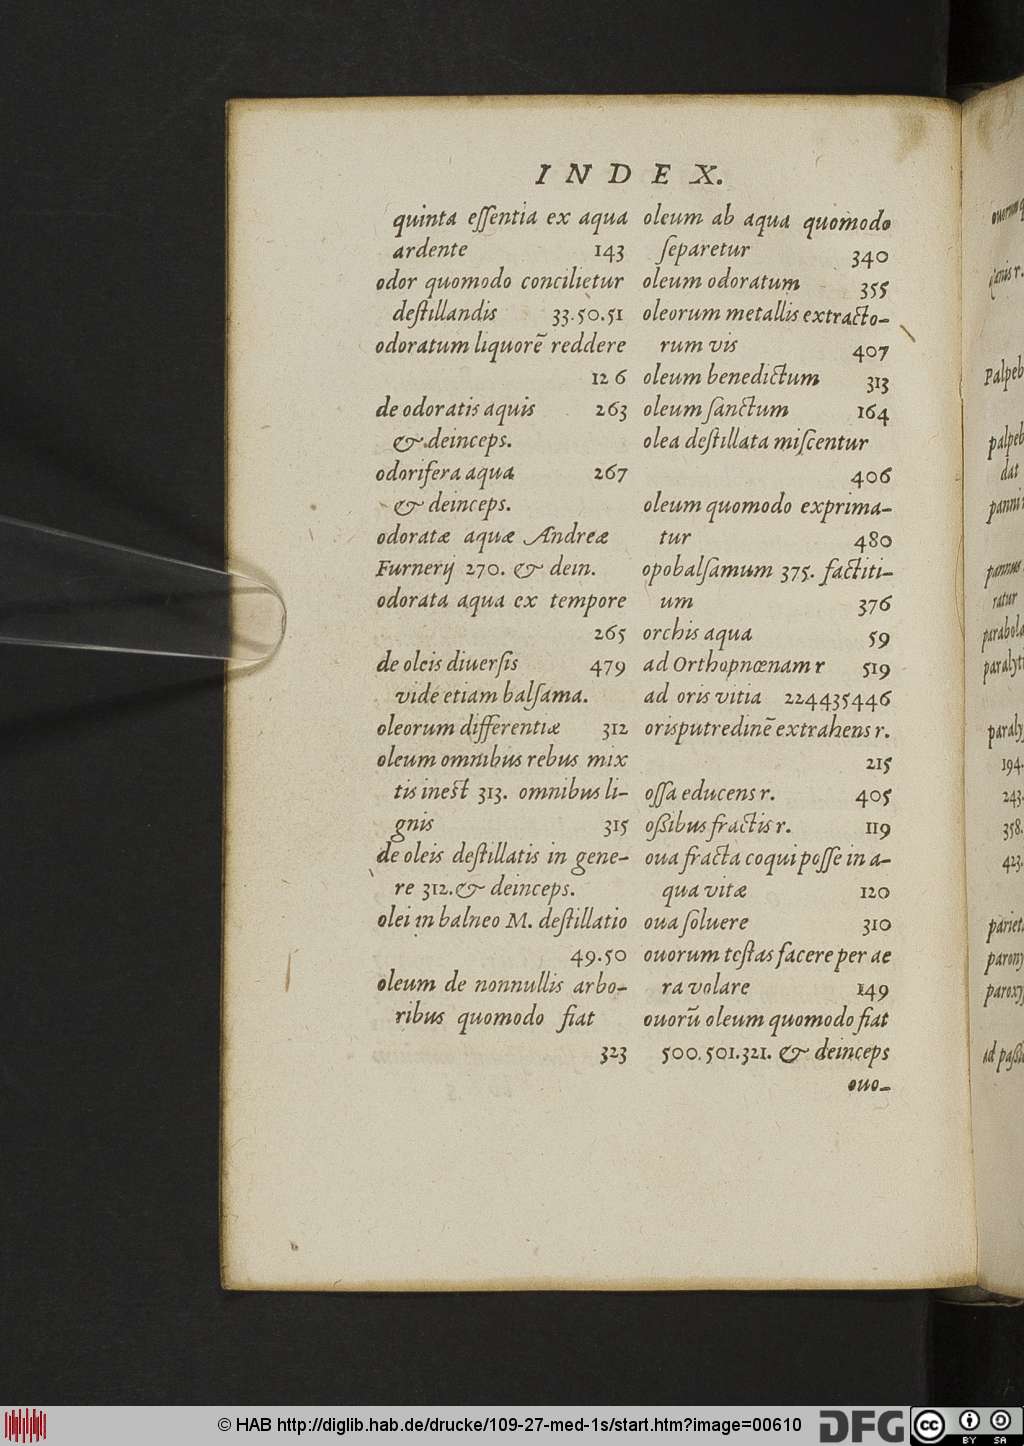 INDEX.
quinta eſſentia ex aqua
ardente 143
odor quomodo concilietur
deſtillandis 33.50.51
odoratum liquorē reddere
126
de odoratis aquis 263
& deinceps.
odorifera aqua 267
& deinceps.
odoratæ aquæ Andreæ
Furnerij 270. & dein.
odorata aqua ex tempore
265
de oleis diuerſis 479
vide etiam balſama.
oleorum differentiæ 312
oleum omnibus rebus mix
tis ineſt 313. omnibus li-
gnis 315
de oleis deſtillatis in gene-
re 312. & deinceps.
olei in balneo M. deſtillatio
49.50
oleum de nonnullis arbo-
ribus quomodo fiat
323
oleum ab aqua quomodo
ſeparetur 340
oleum odoratum 355
oleorum metallis extracto-
rum vis 407
oleum benedictum 313
oleum ſanctum 164
olea deſtillata miſcentur
406
oleum quomodo exprima-
tur 480
opobalſamum 375. factiti-
um 376
orchis aqua 59
ad Orthopnœnam r 519
ad oris vitia 224435446
oris putredinē extrahens r.
215
oſſa educens r. 405
oßibus fractis r. 119
oua fracta coqui poſſe in a-
qua vitæ 120
oua ſoluere 310
ouorum teſtas facere per ae
ra volare 149
ouorū oleum quomodo fiat
500.501.321. & deinceps
ouo-
Palpeb
palpeb
dat
panni
pannus
ratur
parabola
paralyti
paraly
194.
243.
358.
423.
pariet
parony
paroxy
© HAB http://diglib.hab.de/drucke/109-27-med-1s/start.htm?image=00610
DFG
cc
BY SA